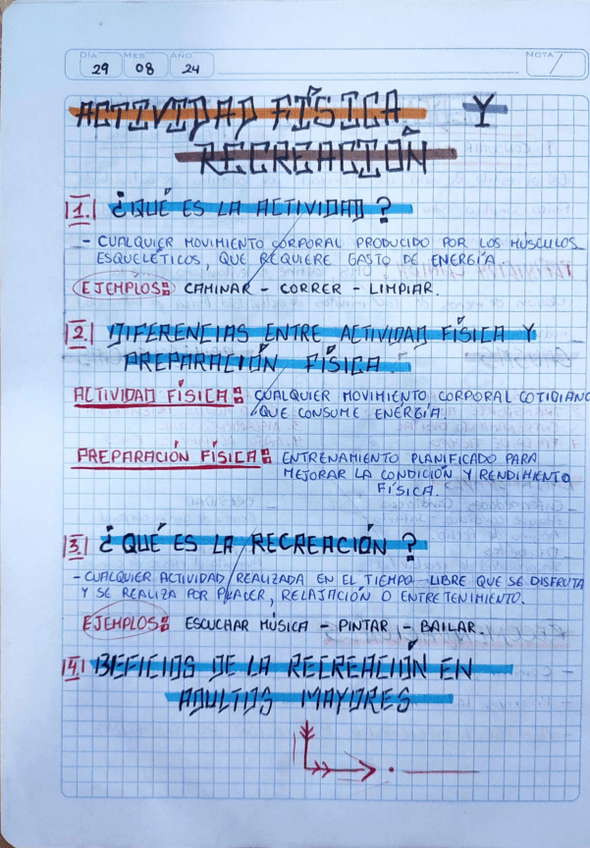 DÍA MES AÑO NOTA
29 08 24
ACTIVIDAD FÍSICA Y
RECREACIÓN
1. ¿QUÉ ES LA ACTIVIDAD?
- CUALQUIER MOVIMIENTO CORPORAL PRODUCIDO POR LOS MÚSCULOS
ESQUELÉTICOS, QUE REQUIERE GASTO DE ENERGÍA.
EJEMPLOS: CAMINAR - CORRER - LIMPIAR.
2. DIFERENCIAS ENTRE ACTIVIDAD FÍSICA Y
PREPARACIÓN FÍSICA
ACTIVIDAD FÍSICA: CUALQUIER MOVIMIENTO CORPORAL COTIDIANO
QUE CONSUME ENERGÍA.
PREPARACIÓN FÍSICA: ENTRENAMIENTO PLANIFICADO PARA
MEJORAR LA CONDICIÓN Y RENDIMIENTO
FÍSICA.
3. ¿QUÉ ES LA RECREACIÓN?
- CUALQUIER ACTIVIDAD REALIZADA EN EL TIEMPO LIBRE QUE SE DISFRUTA
Y SE REALIZA POR PLACER, RELAJACIÓN O ENTRETENIMIENTO.
EJEMPLOS: ESCUCHAR MÚSICA - PINTAR - BAILAR.
4. BEFICIOS DE LA RECREACIÓN EN
ADULTOS MAYORES